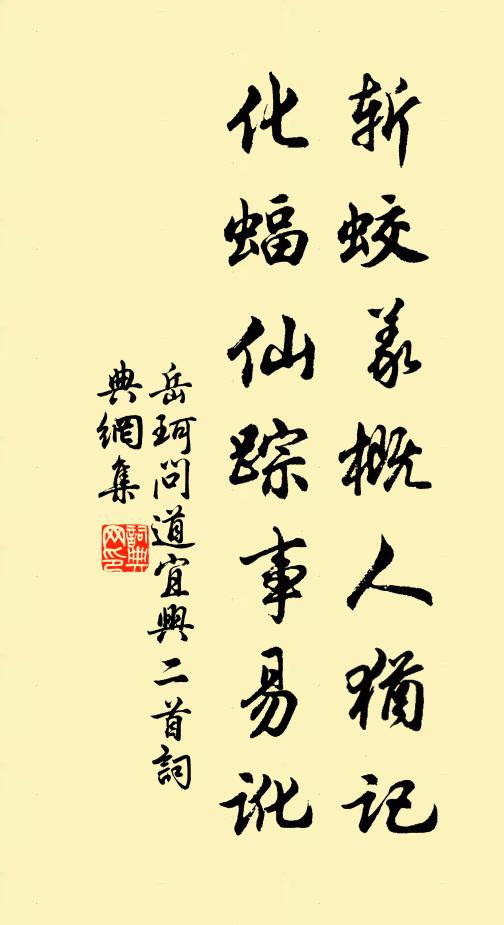 斩蛟義概人猶记
化蝠仙踪事易讹
岳珂问道宜興二首詞
典網集
詞典
网印